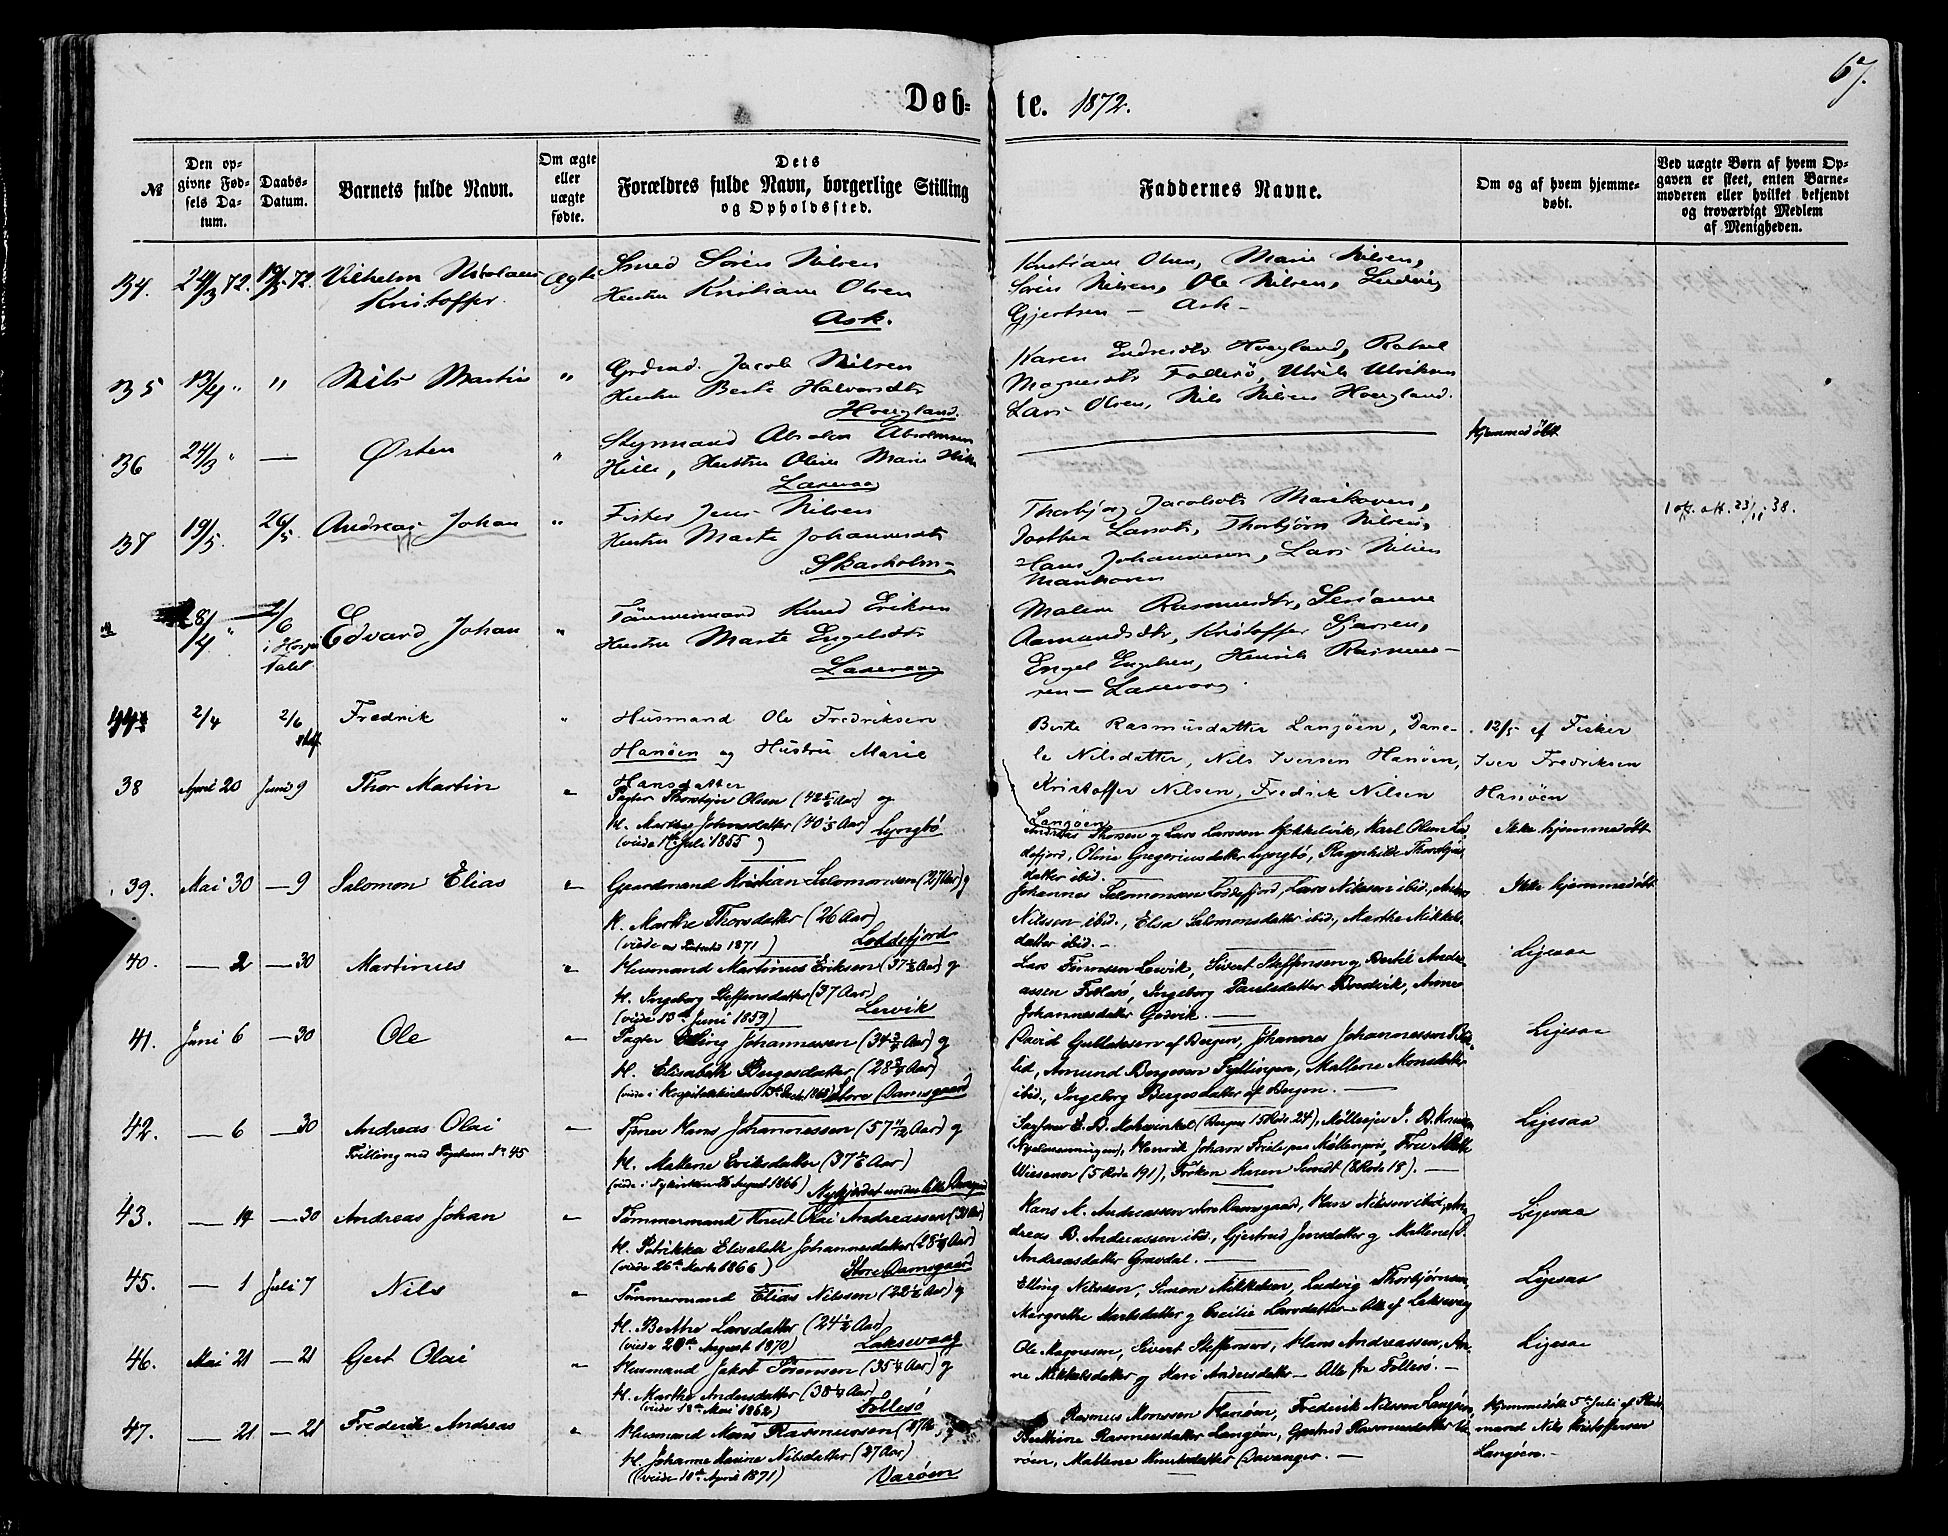 67.
Døb- te. 1872.
№
Den opgivne Fødsels Datum.
Daabs-Datum.
Barnets fulde Navn.
Om ægte eller uægte fødte.
Dets Forældres fulde Navn, borgerlige Stilling og Opholdssted.
Faddernes Navne.
Om og af hvem hjemmedøbt.
Ved uægte Børn af hvem Opgaven er skeet, enten Barnemoderen eller hvilket bekjendt og troværdigt Medlem af Menigheden.
34. 24/3 72. 19/5 72. Vilhelm Nikolaus Ægte Smed Sören Nilsen
Kristoffer. Hustru Kristiane Olsen
Ask.
Kristiane Olsen, Marie Nilsen,
Sören Nilsen, Ole Nilsen, Ludvig
Gjertsen — Ask —
35 13/4 " " Nils Martin " Grdmd. Jacob Nilsen
Hustru Berte Halvorsdtr
Hougland.
Karen Endresdtr Hougland, Rakel
Magnesdtr Follesö, Ulrik Ulriksen
Lars Olsen, Nils Nilsen Hougland.
36 24/3 " — Østen " Styrmand Absalon Absalonsen
Hille, Hustru Oline Marie
Laxevaag
hjemmedøbt
37 19/5 26/5. Andreas Johan " Fisker Jens Nilsen
Hustru Marte Johannesdtr
Skarholm
Thorbjørg Jacobsdtr Mavikoven,
Dorthea Larsdtr, Thorbjörn Nilsen,
Hans Johannesen, Lars Nilsen
1 att. 23/11 38.
28/4 " 2/6 Edvard Johan " Tömmermand Knud Eriksen
i Hospitalet Hustru Marte Engelsdtr
Laxevaag
Malene Rasmusdtr, Serianne
Aamundsdtr, Kristoffer
Engel Engelsen, Henrik Rasmussen — Laxevaag.
44 2/4 2/6 Fredrik " Husmand Ole Fredriksen
Hanöen og Hustru Marie
Hansdatter
Berte Rasmusdatter Langöen, Danele Nilsdatter, Nils Iversen Hanöen,
Kristoffer Nilsen, Fredrik Nilsen
Langöen
12/5 af Fisker
Iver Fredriksen
Hanöen
38 April 20 Juni 9 Thor Martin " Pagter Thorbjørn Olsen (42 Aar) og
H. Marthe Johnsdatter (40 Aar) Lyngbö
(viede Juli 1855)
Andreas Thorsen og Lars Larssen, Karl Olsen Loddefjord, Oline Gregoriusdatter Lyngbö, Ragnhilde Thorbjørnsdatter ibid.
Ikke hjemmedøbt
39. Mai 30 — 9 Salomon Elias " Gaardmand Kristian Salomonsen (27 Aar) og
H. Marthe Thorsdatter (26 Aar)
(viede 1871) Loddefjord
Johannes Salomonsen Loddefjord, Lars Nilssen ibid.,
Nilssen ibid., Elisa Salomonsdatter ibid., Marthe Mikkelsdatter ibid. —
Ikke hjemmedøbt
40. — 2 — 30 Martinus " Husmand Martinus Eriksen (37½ Aar) og
H. Ingeborg Steffensdatter (37 Aar)
(viede 13de Juni 1859) Lervik
Lars Lervik, Sivert Steffensen og Bertel Andreassen Follesö, Ingeborg Paulsdatter Bredvik, Anne
Johannesdatter Godvik. —
Ligesaa
41. Juni 6 — 30 Ole " Pagter Elling Johannessen (34 Aar) og
H. Elisabeth Børgesdatter (28 Aar)
(viede i Hospitalskirken) Store Damsgaard
David Gullaksen af Bergen, Johannes Johannessen
Amund Børgesen Fyllingen, Mallene Monsdatter
ibid., Ingeborg Børgesdatter af Bergen. —
Ligesaa
42. — 6 — 30 Andreas Olai " Tjener Hans Johannessen (57 Aar) og
Tvilling med Pigebarn Nr 45
H. Mallene Eriksdatter (37 Aar)
(viede i Nykirken 26 August 1866) Nygjærdet under lille Damsgaard
Sagfører E. B. Schwinkel (Bergen 15 Rode 24),
Henrik Johan Friele paa Møllenpris, Frue
Wiesener (5 Rode 191), Frøken Karen Sundt (Rode 18). —
Ligesaa
43. — 14 — 30 Andreas Johan " Tømmermand Knut Olai Andreassen (31 Aar)
H. Petrikke Elisabeth Johannesdatter (28 Aar)
(viede 26de Marts 1866) Store Damsgaard
Hans M. Andreassen Damsgaard, Hans Nilssen ibid., Andreas B. Andreassen ibid., Gjertrud Jensdatter og Mallene
Andreasdatter Gravdal. —
Ligesaa
45. — 1 Juli 7 Nils " Tømmermand Elias Nilssen (22½ Aar) og
H. Berthe Larsdatter (24½ Aar)
(viede 20de August 1870) Laksevaag
Elling Nilssen, Simon Mikkelsen, Ludvig Thorbjørnsen,
Margrethe Martsdatter og Cecilie Larsdatter — Alle af Laksevaag
Ligesaa
46. Mai 21 — 21 Gert Olai " Husmand Jakob (35 Aar) og
H. Marthe Andersdatter (38 Aar)
(viede 18de Mai 1862) Follesö
Ole Magnesen, Sivert Steffensen, Hans Andreassen, Anne Mikkelsdatter og Kari Andersdatter — Alle fra Follesö. —
Ligesaa
47. — 21 — 21 Frederik Andreas " Husmand Mons Rasmussen (27 Aar) og
H. Johanne Marine Nilsdatter (27 Aar)
(viede 10de April 1871) Varöen
Rasmus Monssen Hanöen, Frederik Nilssen Langöen,
Berthine Rasmusdatter Langöen, Gjertrud Rasmusdatter Varöen, Mallene Knutsdatter Davanger. —
Hjemmedøbt 5te Juli af
Nils Kristoffersen
Langöen. —